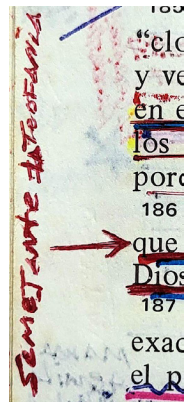 SEMEJANTE A LA TEOFANIA
185
“clo
y ve
en e
los
porq
186
que
Dios
187
exac
el p